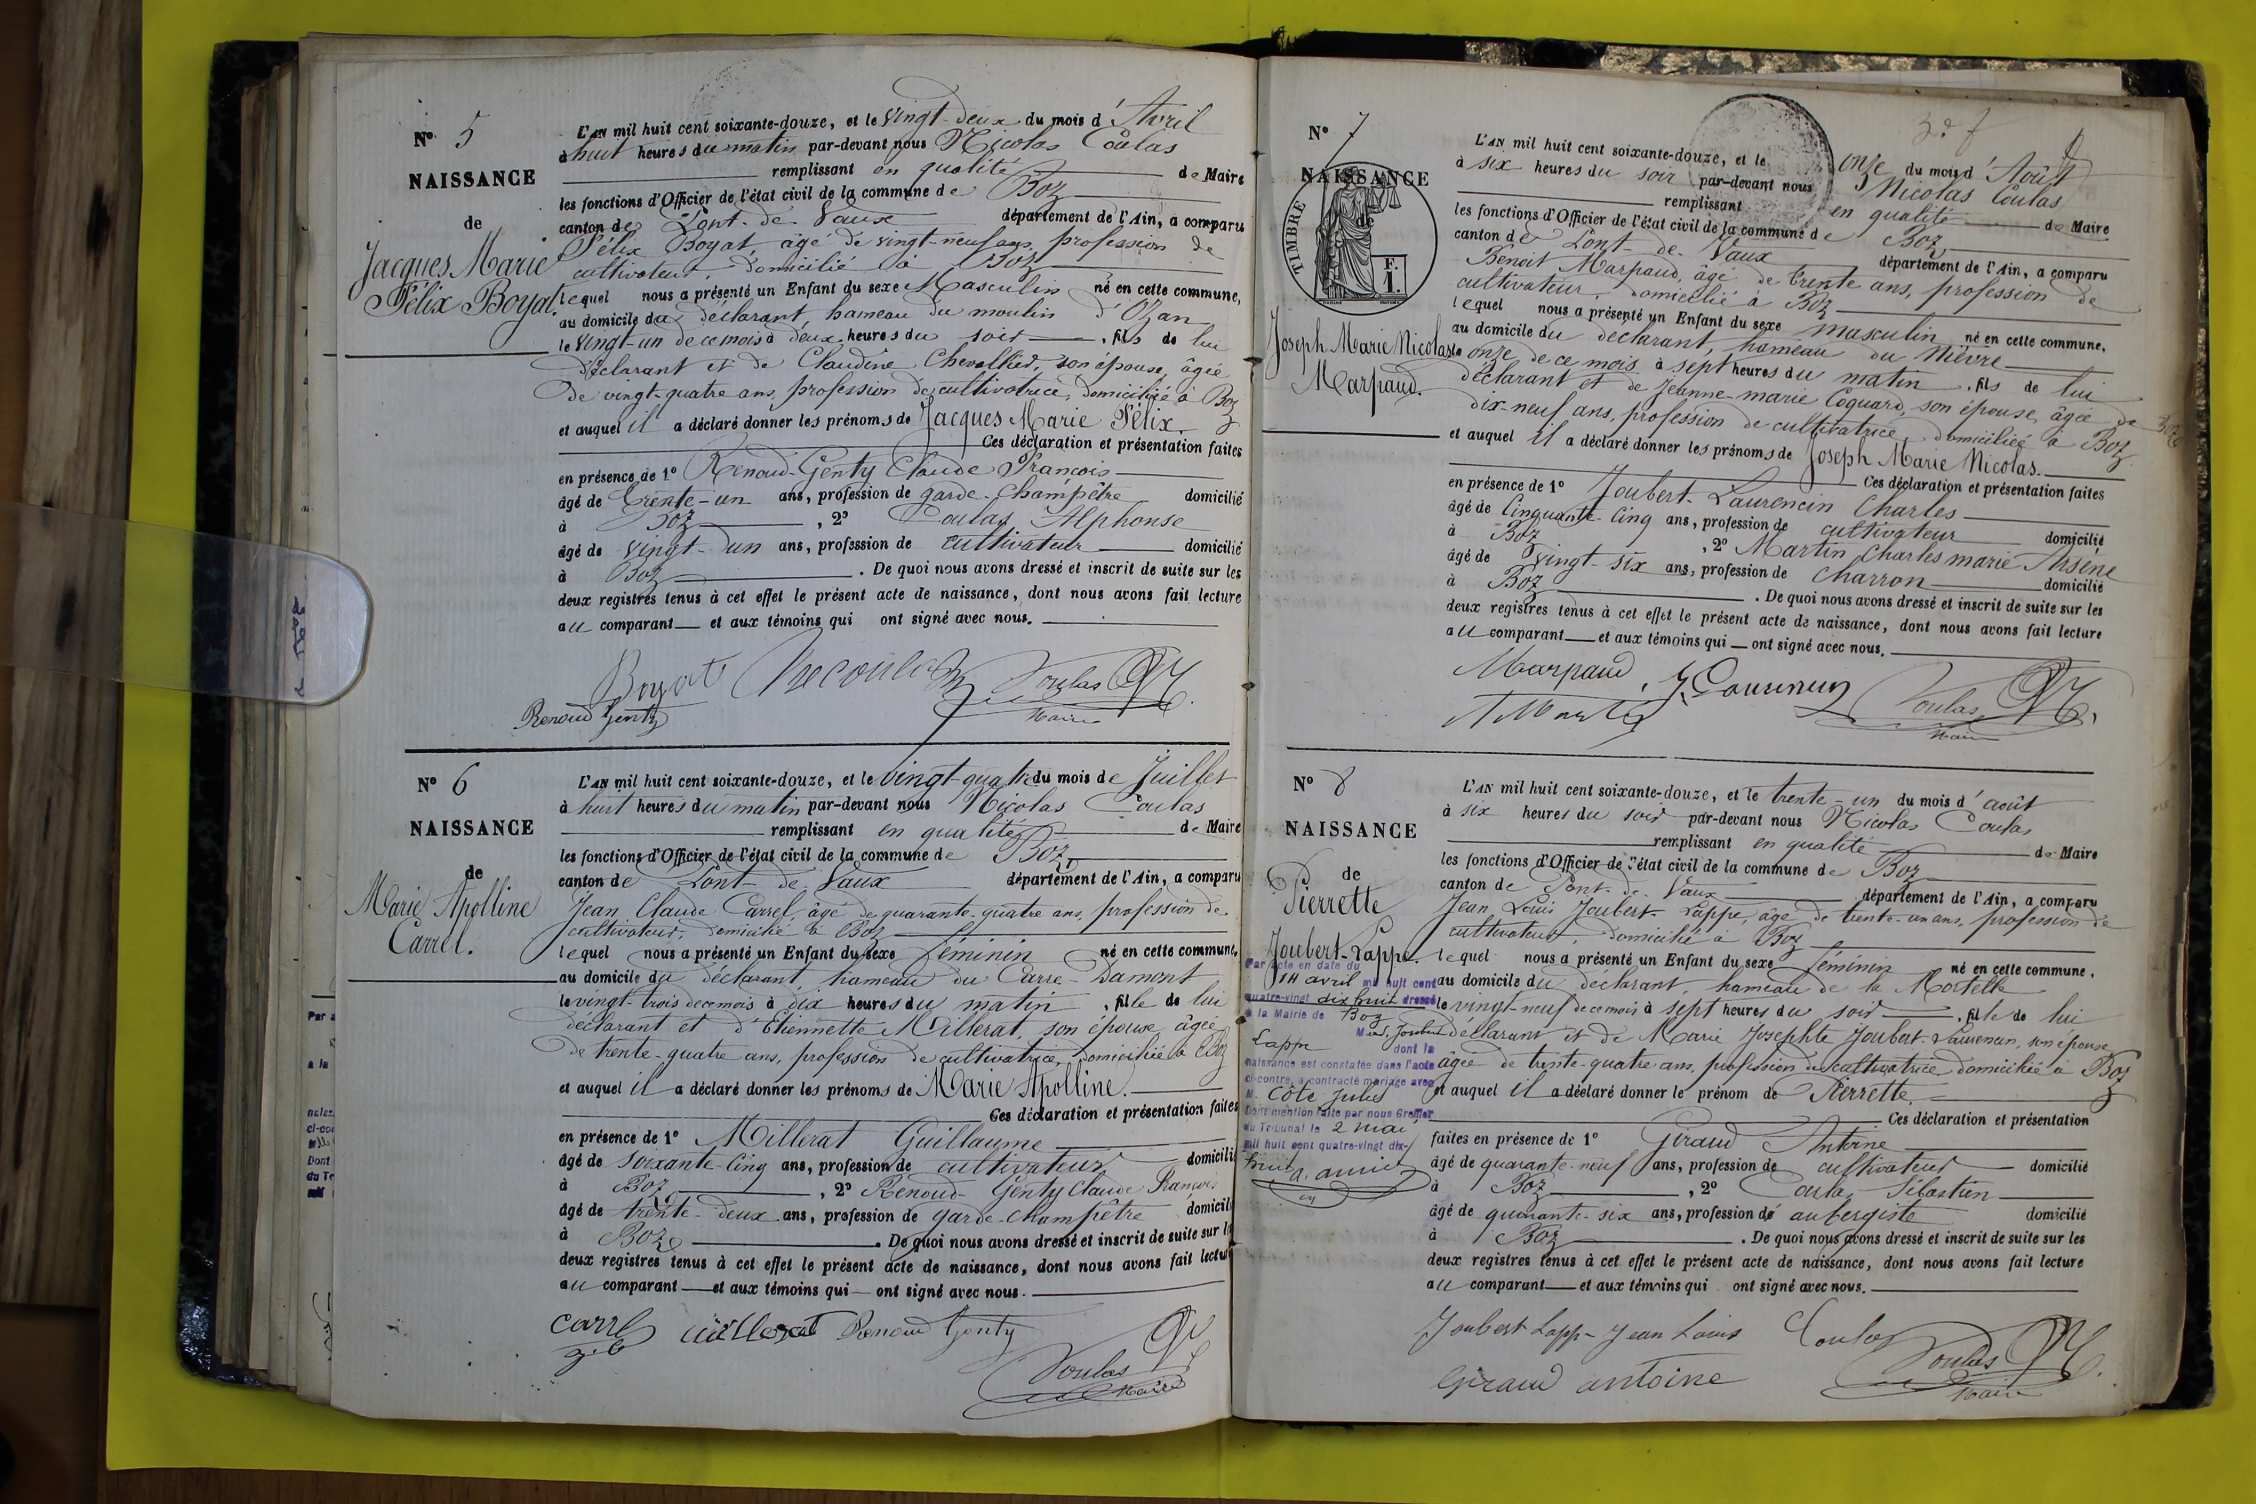 N° 5
NAISSANCE
de
Jacques Marie
Félix Boyat.
L'AN mil huit cent soixante-douze, et le vingt-deux du mois d'Avril
à huit heures du matin par-devant nous Nicolas Coulas
remplissant en qualité de Maire
les fonctions d'Officier de l'état civil de la commune de Boz
canton de Pont-de-Vaux département de l'Ain, a comparu
Félix Boyat, âgé de vingt-neuf ans, profession de
cultivateur, domicilié à Boz
lequel nous a présenté un Enfant du sexe Masculin né en cette commune,
au domicile du déclarant, hameau du moulin d'Ozan
le vingt-un de ce mois à deux heures du soir, fils de lui
déclarant et de Claudine Chevallier, son épouse, âgée
de vingt-quatre ans, profession de cultivatrice, domiciliée à Boz
et auquel il a déclaré donner les prénoms de Jacques Marie Félix.
Ces déclaration et présentation faites
en présence de 1° Renoud-Genty Claude François
âgé de trente-un ans, profession de garde-champêtre domicilié
à Boz, 2° Coulas Alphonse
âgé de vingt-un ans, profession de cultivateur domicilié
à Boz. De quoi nous avons dressé et inscrit de suite sur les
deux registres tenus à cet effet le présent acte de naissance, dont nous avons fait lecture
au comparant et aux témoins qui ont signé avec nous.
Boyat Coulas
Renoud Genty Maire
N° 6
NAISSANCE
de
Marie Apolline
Carrel.
L'AN mil huit cent soixante-douze, et le vingt-quatre du mois de Juillet
à huit heures du matin par-devant nous Nicolas Coulas
remplissant en qualité de Maire
les fonctions d'Officier de l'état civil de la commune de Boz
canton de Pont-de-Vaux département de l'Ain, a comparu
Jean Claude Carrel, âgé de quarante-quatre ans, profession de
cultivateur, domicilié à Boz
lequel nous a présenté un Enfant du sexe féminin né en cette commune,
au domicile du déclarant, hameau du Carre-Damont
le vingt-trois de ce mois à dix heures du matin, fille de lui
déclarant et d'Etiennette Millerat, son épouse âgée
de trente-quatre ans, profession de cultivatrice, domiciliée à Boz
et auquel il a déclaré donner les prénoms de Marie Apolline.
Ces déclaration et présentation faites
en présence de 1° Millerat Guillaume
âgé de soixante-cinq ans, profession de cultivateur domicilié
à Boz, 2° Renoud-Genty Claude François
âgé de trente-deux ans, profession de garde-champêtre domicilié
à Boz. De quoi nous avons dressé et inscrit de suite sur les
deux registres tenus à cet effet le présent acte de naissance, dont nous avons fait lecture
au comparant et aux témoins qui ont signé avec nous.
Carrel Millerat Renoud Genty
Coulas
Maire
N° 7
NAISSANCE
de
TIMBRE
F.
1.
Joseph Marie Nicolas
Marpaud.
L'AN mil huit cent soixante-douze, et le onze du mois d'Août
à six heures du soir par-devant nous Nicolas Coulas
remplissant en qualité de Maire
les fonctions d'Officier de l'état civil de la commune de Boz
canton de Pont-de-Vaux département de l'Ain, a comparu
Benoit Marpaud, âgé de trente ans, profession de
cultivateur, domicilié à Boz
lequel nous a présenté un Enfant du sexe masculin né en cette commune,
au domicile du déclarant, hameau du Nièvre
le onze de ce mois à sept heures du matin, fils de lui
déclarant et de Jeanne-marie Coquard, son épouse, âgée de
dix-neuf ans, profession de cultivatrice, domiciliée à Boz
et auquel il a déclaré donner les prénoms de Joseph Marie Nicolas.
Ces déclaration et présentation faites
en présence de 1° Joubert-Laurencin Charles
âgé de Cinquante-Cinq ans, profession de cultivateur domicilié
à Boz, 2° Martin Charles marie Arsène
âgé de Vingt-six ans, profession de charron domicilié
à Boz. De quoi nous avons dressé et inscrit de suite sur les
deux registres tenus à cet effet le présent acte de naissance, dont nous avons fait lecture
au comparant et aux témoins qui ont signé avec nous.
Marpaud J. Laurencin
A Martin Coulas
Maire
N° 8
NAISSANCE
de
Pierrette
Joubert-Lappe.
Par acte en date du
14 avril mil huit cent
quatre-vingt dix huit dressé
à la Mairie de Boz
M Joubert
Lappe dont la
naissance est constatée dans l'acte
ci-contre, a contracté mariage avec
M. Côte Jules
Dont mention faite par nous Greffier
du Tribunal le 2 mai
mil huit cent quatre-vingt dix-
huit
L'AN mil huit cent soixante-douze, et le trente-un du mois d'août
à six heures du soir par-devant nous Nicolas Coulas
remplissant en qualité de Maire
les fonctions d'Officier de l'état civil de la commune de Boz
canton de Pont-de-Vaux département de l'Ain, a comparu
Jean Louis Joubert-Lappe, âgé de trente-un ans, profession de
cultivateur, domicilié à Boz
lequel nous a présenté un Enfant du sexe féminin né en cette commune,
au domicile du déclarant, hameau de la Mortelle
le vingt-neuf de ce mois à sept heures du soir, fille de lui
déclarant et de Marie Josephte Joubert-Laurencin, son épouse
âgée de trente-quatre ans, profession de cultivatrice domiciliée à Boz
et auquel il a déclaré donner le prénom de Pierrette.
Ces déclaration et présentation
faites en présence de 1° Giraud Antoine
âgé de quarante-neuf ans, profession de cultivateur domicilié
à Boz, 2° Coulas Sébastien
âgé de quarante-six ans, profession de aubergiste domicilié
à Boz. De quoi nous avons dressé et inscrit de suite sur les
deux registres tenus à cet effet le présent acte de naissance, dont nous avons fait lecture
au comparant et aux témoins qui ont signé avec nous.
Joubert Lapp-Jean Louis Coulas
Giraud antoine Coulas
Maire